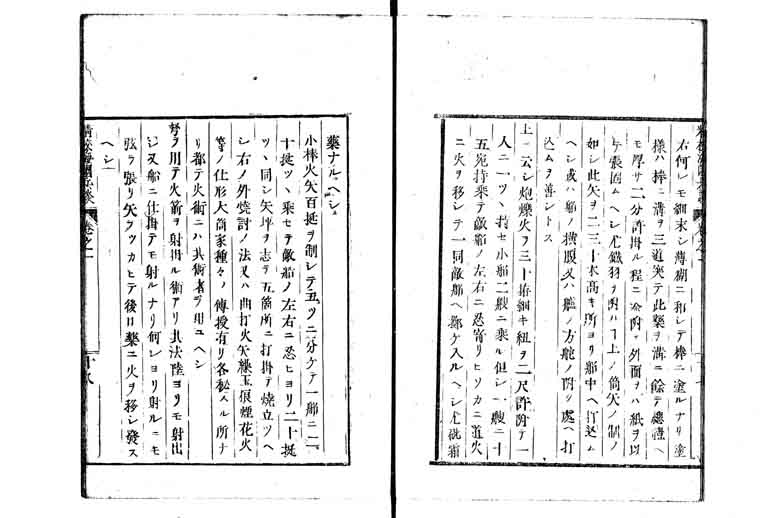 右何レモ細末シ薄糊ニ和シテ棒ニ塗ルナリ塗
様ハ棒ニ溝ヲ三道突テ此藥ヲ溝ニ餘テ總躰ヘ
モ厚サ二分許掛ル程ニ塗附ケ外面ヲハ紙ヲ以
テ張固ムヘシ尤鐵羽ヲ附ハ丁上ノ筒矢ノ制ノ
如シ此矢ヲ二三十本高キ所ヨリ船中ヘ打込ム
ヘシ或ハ船ノ横腹又ハ艫ノ方舵ノ附リ處ヘ打
込ムヲ善シトス
上ニ云シ炮爍火ヲ三十拵細キ紐ヲ二尺許附テ一
人ニ一ツヽ持セ小船二艘ニ乘ル但シ一艘ニ十
五宛持乘テ敵船ノ左右ニ忍寄リヒソカニ道火
ニ火ヲ移シテ一同敵船ヘ擲ケ入ルヘシ尤此船
藥ナルヘシ
小棒火矢百挺ヲ制シテ五ツニ分ケテ一船ニ二
十挺ツヽ乘セテ敵船ノ左右ニ忍ヒヨリ二十挺
ツヽ同シ矢坪ヲ志テ五箇所ニ打掛テ燒立ツヘ
シ右ノ外燒討ノ法又ハ曲打火矢極玉狼煙花火
等ノ仕形大筒家種々ノ傳授有リ各秘スル所ナ
リ都テ火術ニハ其術者ヲ用ユヘシ
弩ヲ用テ火箭ヲ射掛ル術アリ其法陸ヨリモ射出
シ又船ニ仕掛テモ射ルナリ何レヨリ射ルニモ
弦ヲ張リ矢ヲツカヒテ後口藥ニ火ヲ移シ發ス
ヘシ
海國兵談
卷之一